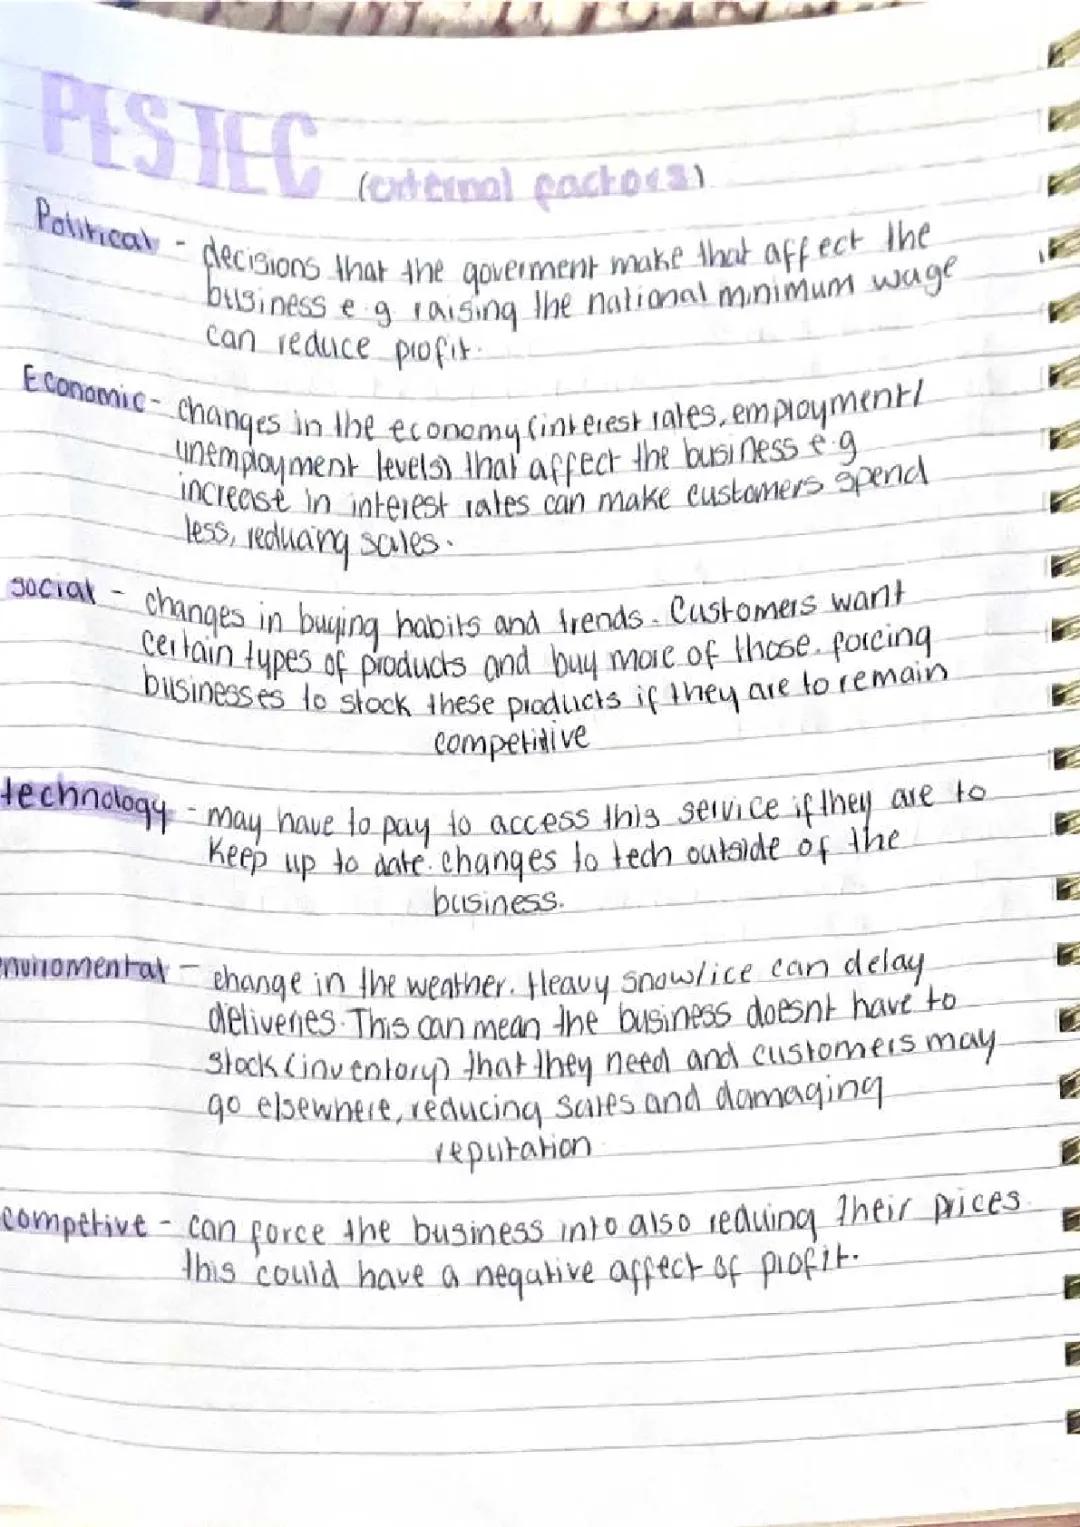 PESTEC
(external factors)
Political - decisions that the goverment make that affect the
business e.g raising the national minimum wage
can reduce profit.
Economic - changes in the economy (interest rates, employment/
unemployment levels) that affect the business e.g
increase in interest rates can make customers spend
less, reducing sales.
social - changes in buying habits and trends. Customers want
certain types of products and buy more of those. forcing
businesses to stock these products if they are to remain
competitive
technology - may have to pay to access this service if they are to
keep up to date. changes to tech outside of the
business.
enviromental - change in the weather. Heavy snow/ice can delay
deliveries. This can mean the business doesnt have to
stock (inventory) that they need and customers may
go elsewhere, reducing sales and damaging
reputation
competive - can force the business into also reduing their prices.
this could have a negative affect of profit.